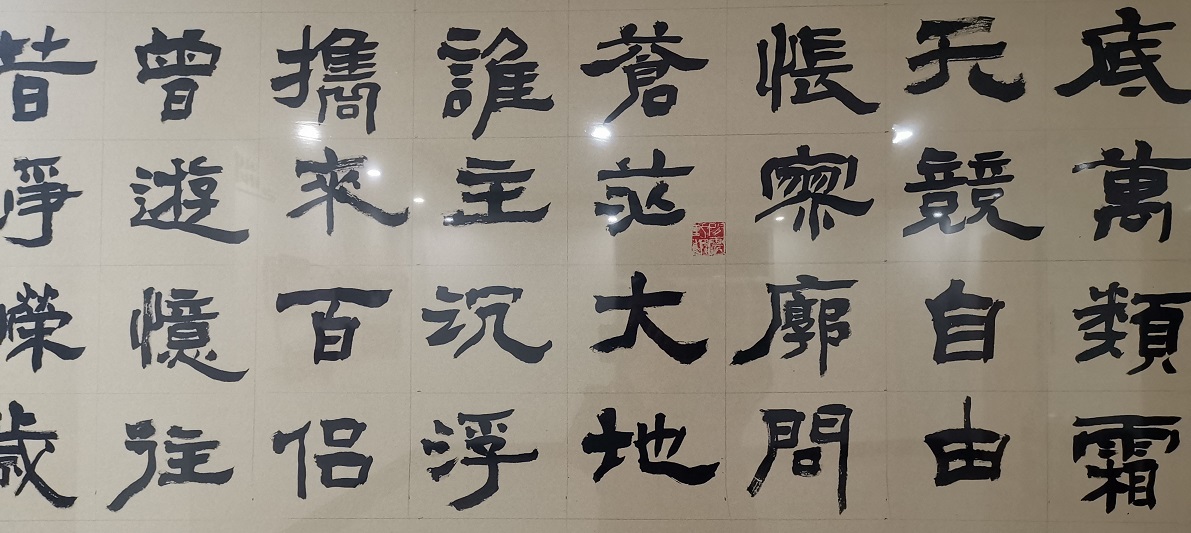 底萬類霜
天競自由
悵寥廓問
蒼茫大地
誰主沉浮
攜來百侣
曾遊憶往
昔崢嶸歲